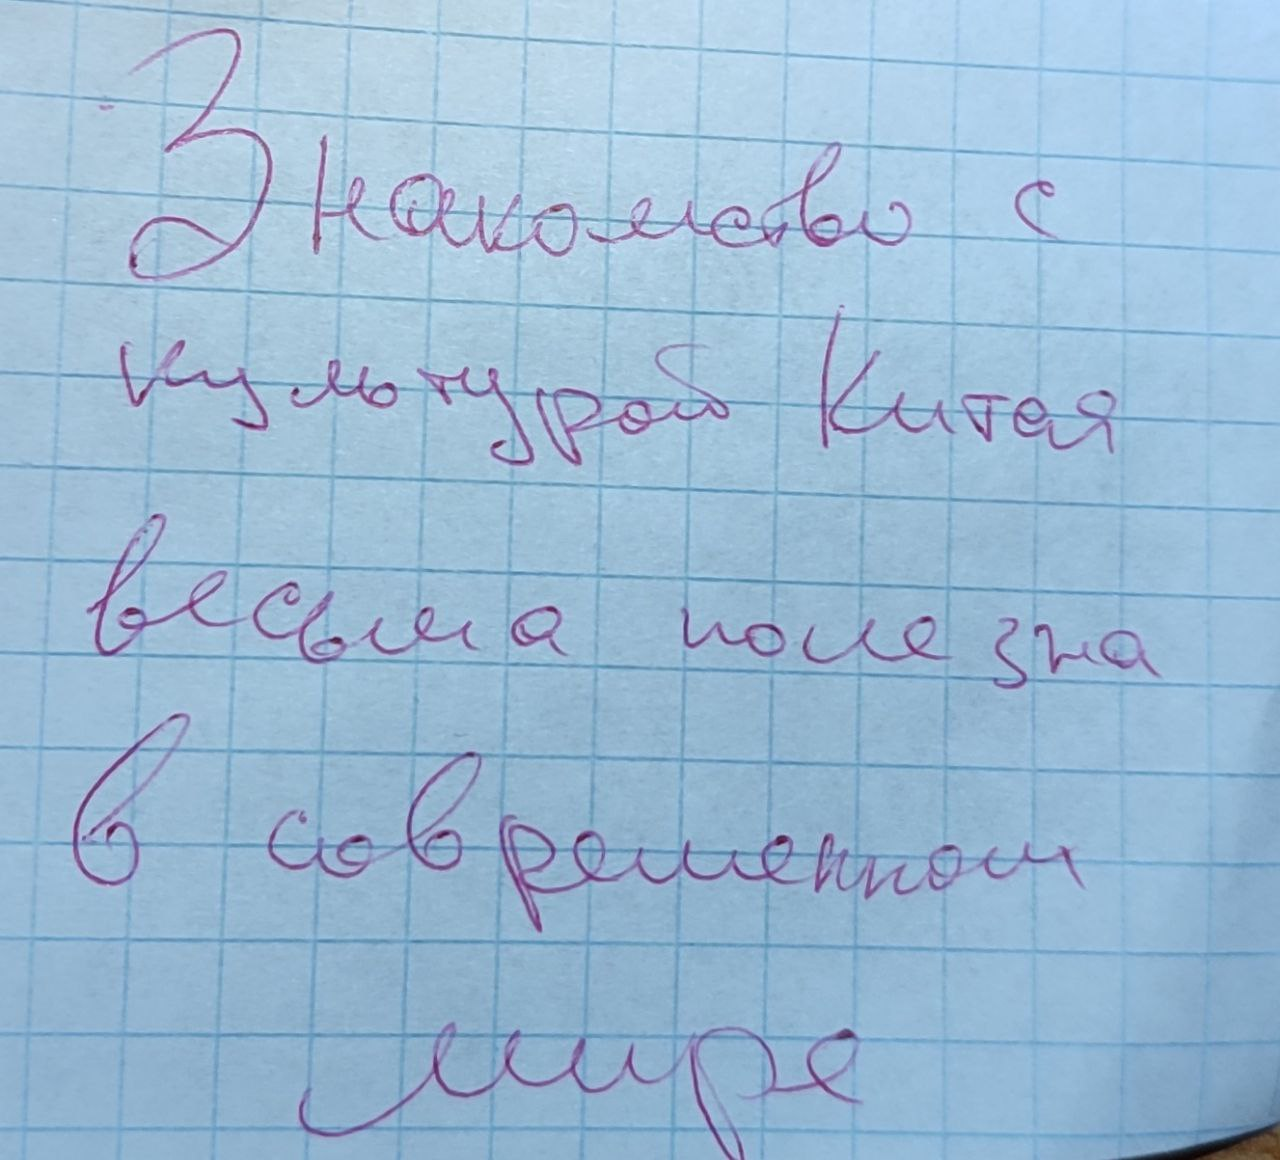 Знакомство с
культурой Китая
весьма полезна
в современном
мире